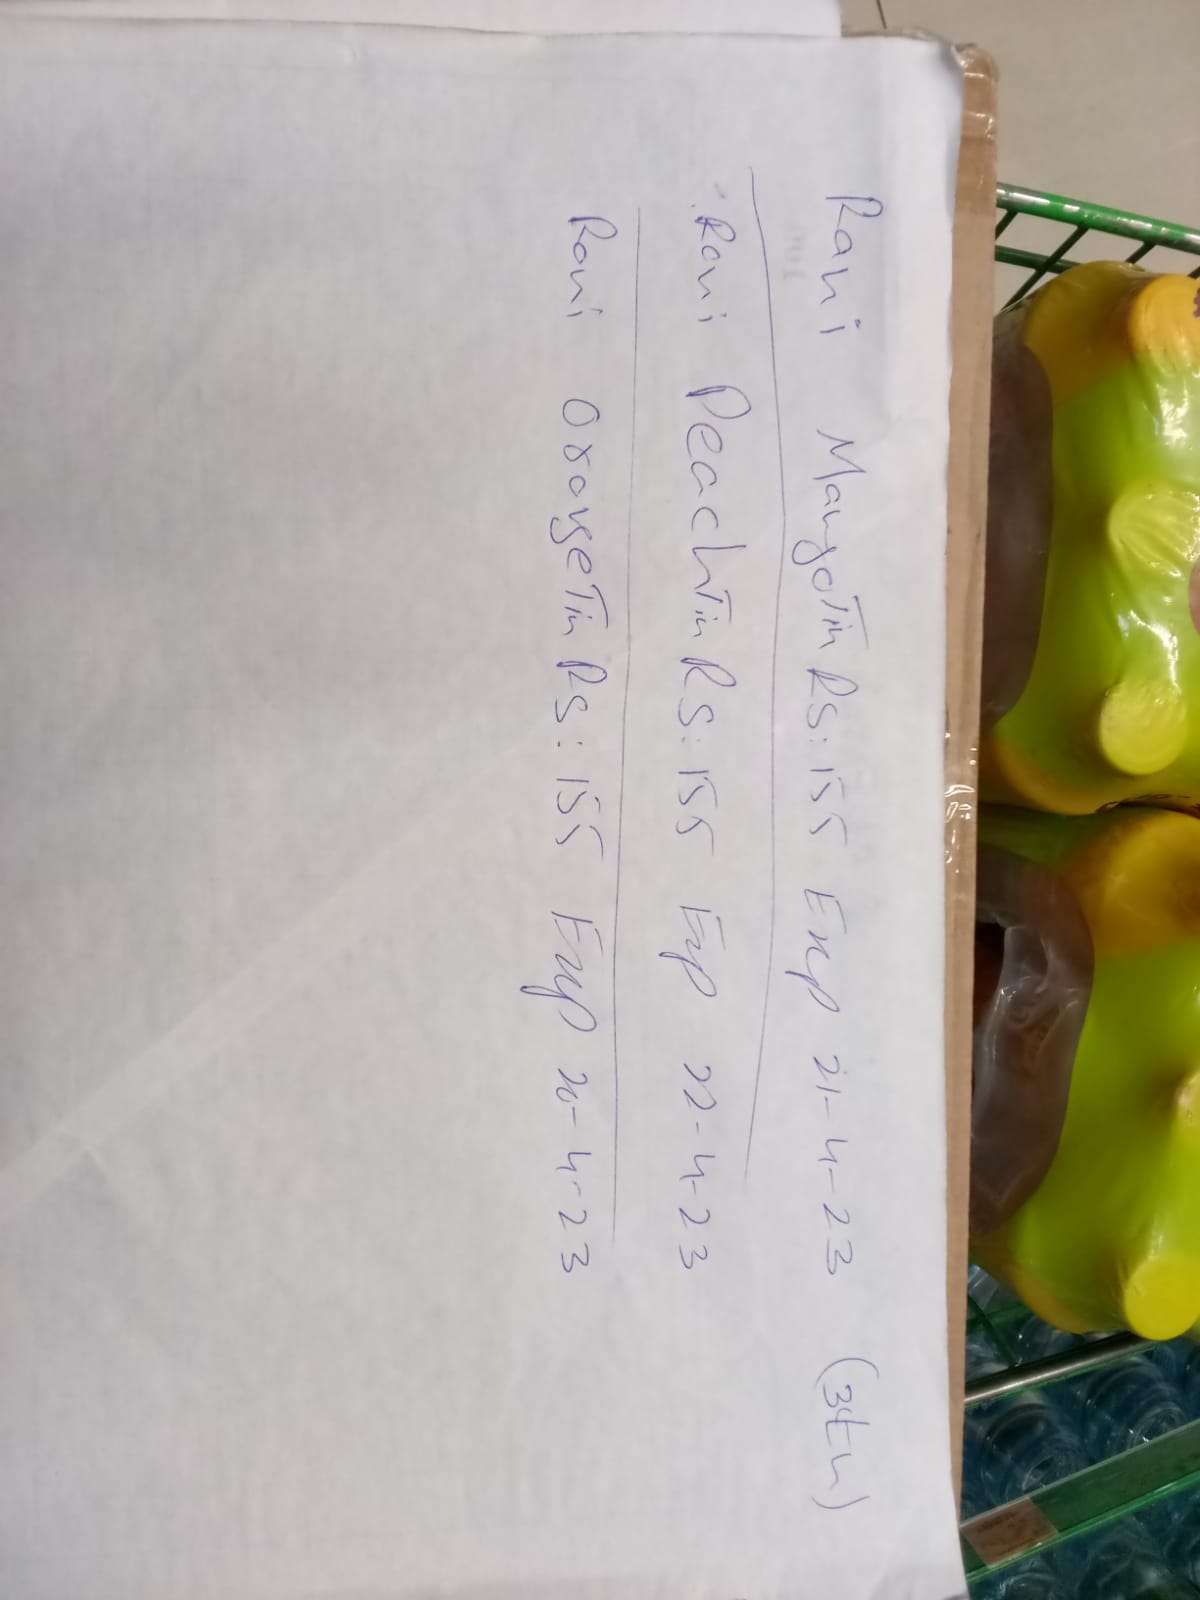 Rani MangoTin RS:155 Exp 21-4-23 (3tn)
Rani PeachTin RS:155 Exp 22-4-23
Rani OrangeTin RS:155 Exp 20-4-23